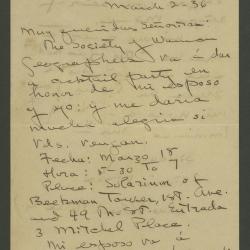 March 2-36
Muy queridas Señoritas:
The Society of Woman
Geographers va á dar
y cocktail party en
honor de mi esposo
y yo; y me daria
mucha alegria si
Vds. vengan.
Fecha: Marzo 18
Hora: 5-30 to 7
Place: Solarium of
Beekman Tower, 1st. Ave.
and 49th-St. Entrada
3 Mitchel Place.
Mi esposo va á